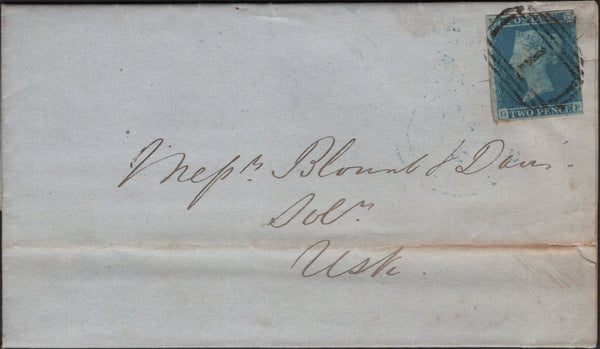 POSTAGE
TWO PENCE
Messrs. Blount & Davis
Solrs.
Usk.